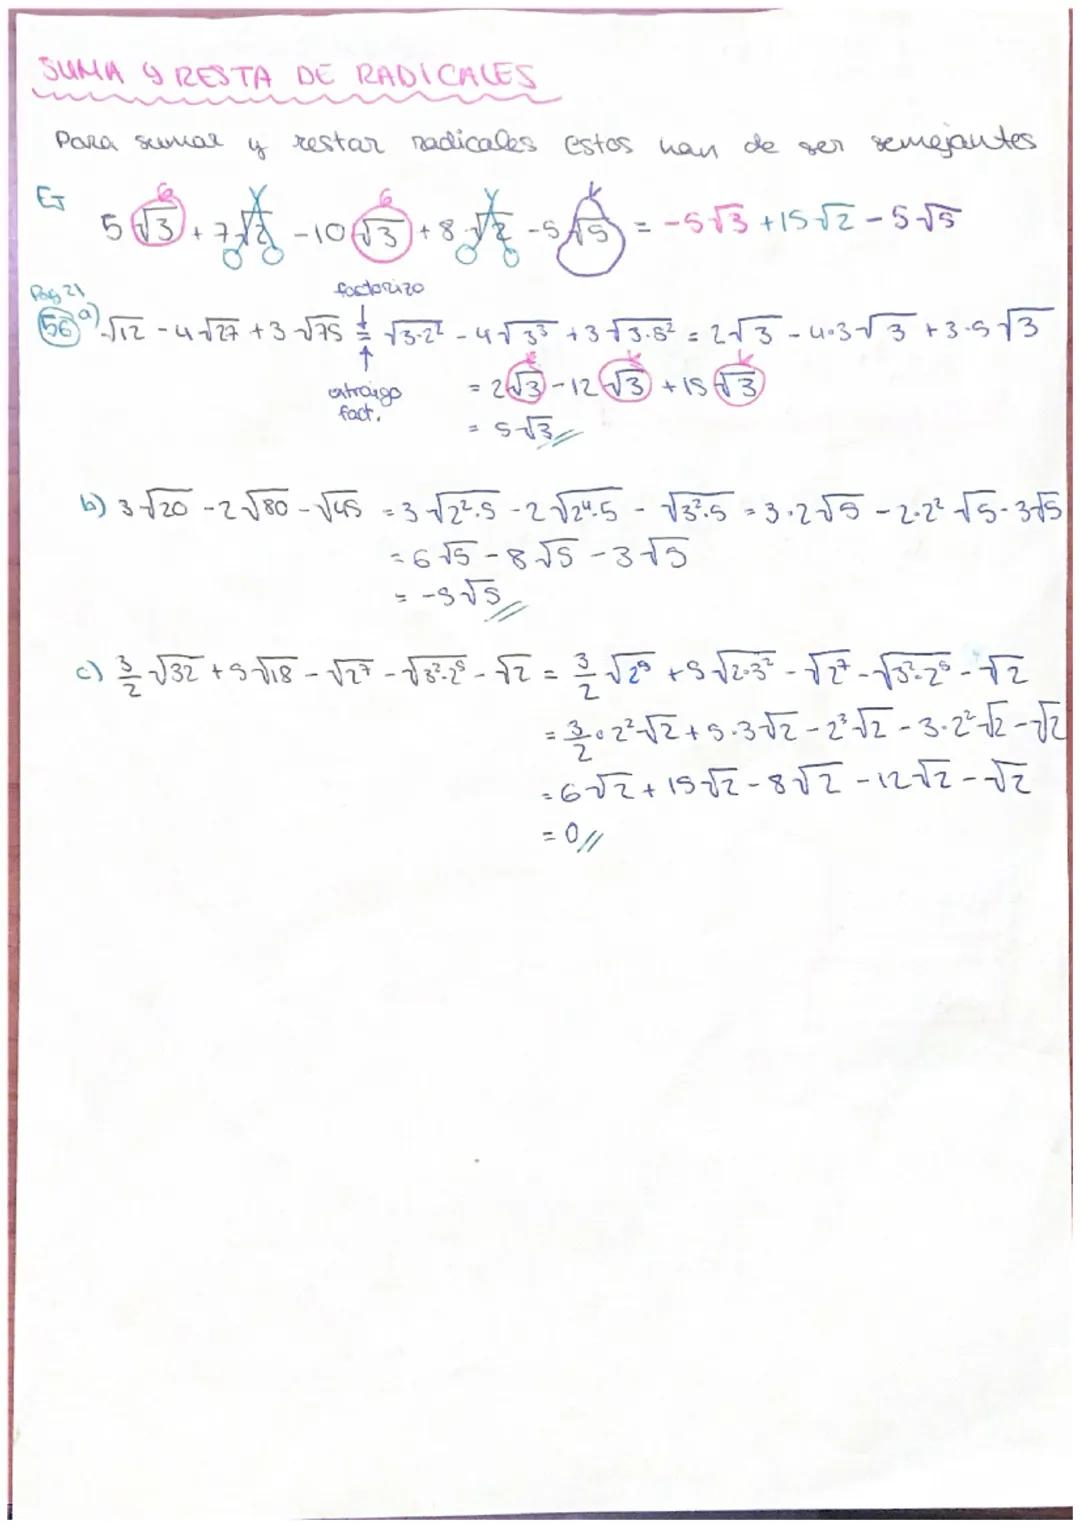 SUMA Y RESTA DE RADICALES
Para sumar y restar radicales estos han de ser semejantes
EJ
5√3 + 7√2 - 10√3 + 8√2 - 5√5 = -5√3 + 15√2 - 5√5
Pág 21
factorizo
56 a) √12 - 4√27 + 3√75 = √3·2² - 4√3³ + 3√3·5² = 2√3 - 4·3√3 + 3·5√3
extraigo
fact.
= 2√3 - 12√3 + 15√3
= 5√3
b) 3√20 - 2√80 - √45 = 3√2²·5 - 2√2⁴·5 - √3²·5 = 3·2√5 - 2·2²√5 - 3√5
= 6√5 - 8√5 - 3√5
= -5√5
c) 3/2 √32 + 5√18 - √2⁷ - √3²·2⁵ - √2 = 3/2 √2⁵ + 5√2·3² - √2⁷ - √3²·2⁵ - √2
= 3/2 · 2²√2 + 5·3√2 - 2³√2 - 3·2²√2 - √2
= 6√2 + 15√2 - 8√2 - 12√2 - √2
= 0